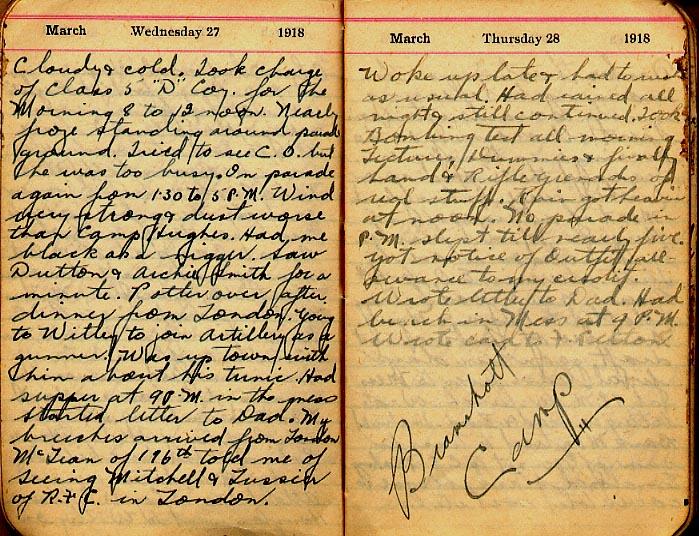 March Wednesday 27 1918
Cloudy & cold. Took charge
of Class 5 "D" Coy. for the
Morning 8 to 12 noon. Nearly
froze standing around parade
ground. Tried to see C.O. but
he was too busy. On parade
again from 1.30 to 5 P.M. Wind
very strong & dust worse
than Camp Hughes. Had me
black as a nigger. Saw
Dutton & Archie Smith for a
minute. Potter over after
dinner from London. Going
to Witley to join Artillery as a
gunner. Was up town with
him about his tunic. Had
supper at 9 P.M. in the mess
started letter to Dad. My
breeches arrived from London
McLean of 196th told me of
seeing Mitchell & Tussier
of R. & C. in London.
March Thursday 28 1918
Woke up late & had to rush
as usual. Had rained all
night & still continued. Took
Bombing test all morning
Lectures, Dummies & finally
hand & Rifle grenades of
real stuff. Rain got heavier
at noon. No parade in
P.M. slept till nearly five.
got notice of Outfit all-
owance to my credit.
Wrote letter to Dad. Had
lunch in Mess at 9 P.M.
Wrote card to
Bramshott
Camp